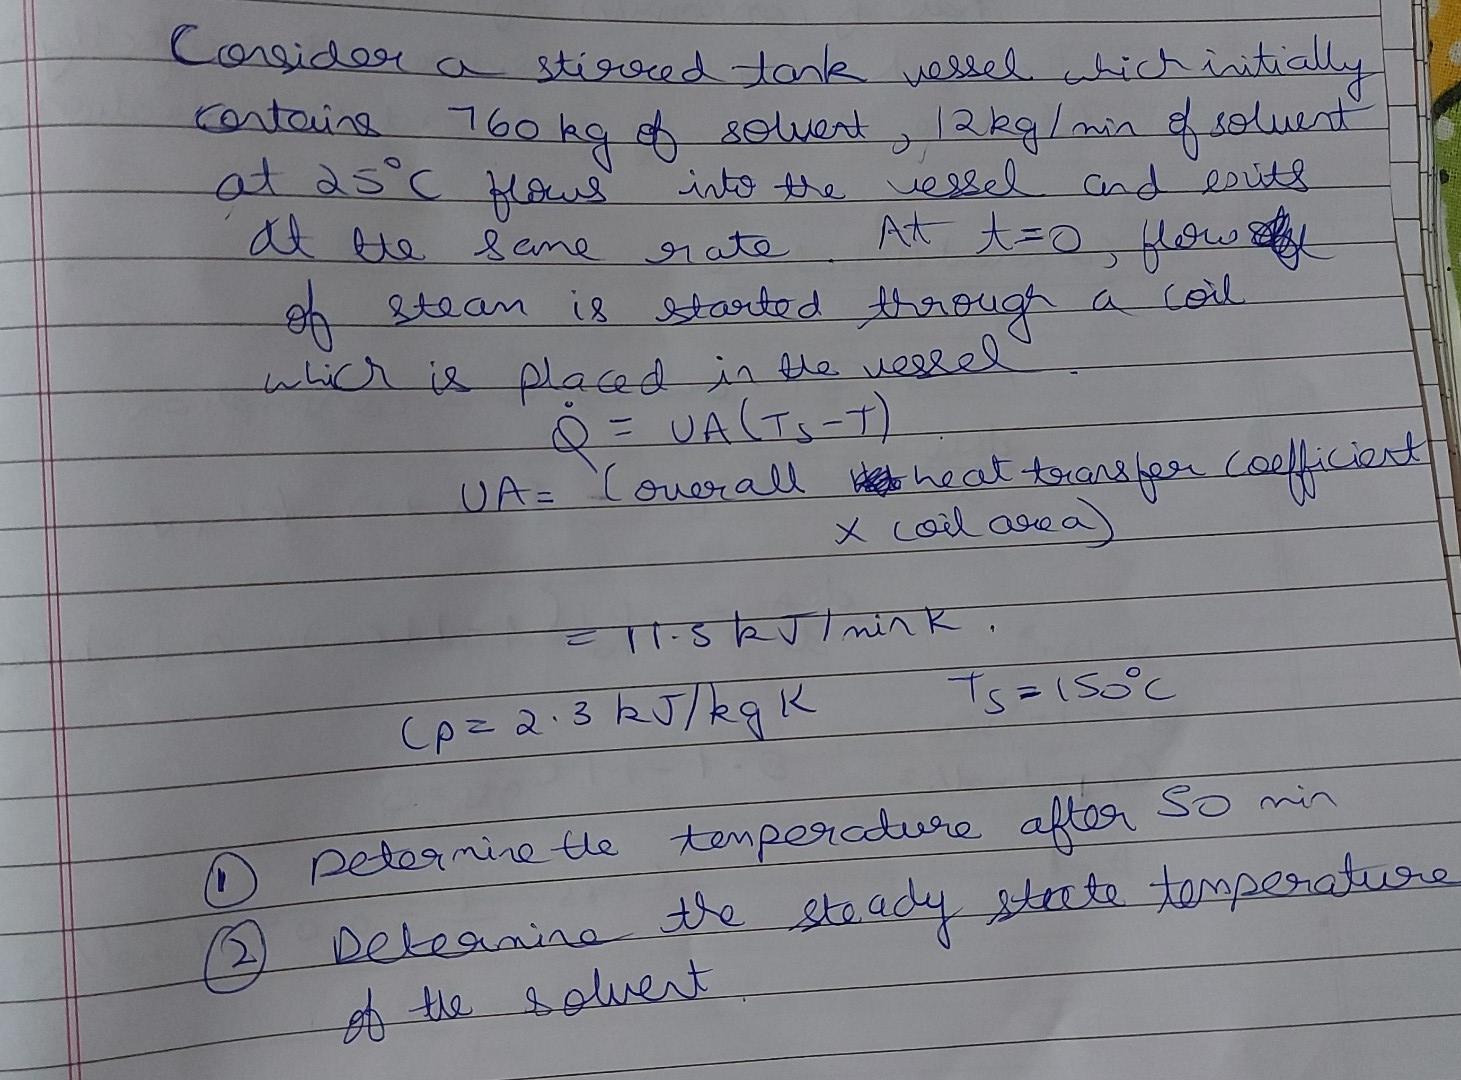 Consider a stirred tank vessel which initially
contains 760 kg of solvent, 12 kg/min of solvent
at 25°C flows into the vessel and exits
at the same rate. At t=0, flow
of steam is started through a coil
which is placed in the vessel.
Q̇ = UA(Ts-T)
UA = (overall heat transfer coefficient
x coil area)
= 11.5 kJ/min K.
Cp = 2.3 kJ/kg K Ts = 150°C
① Determine the temperature after 50 min
② Determine the steady state temperature
of the solvent.